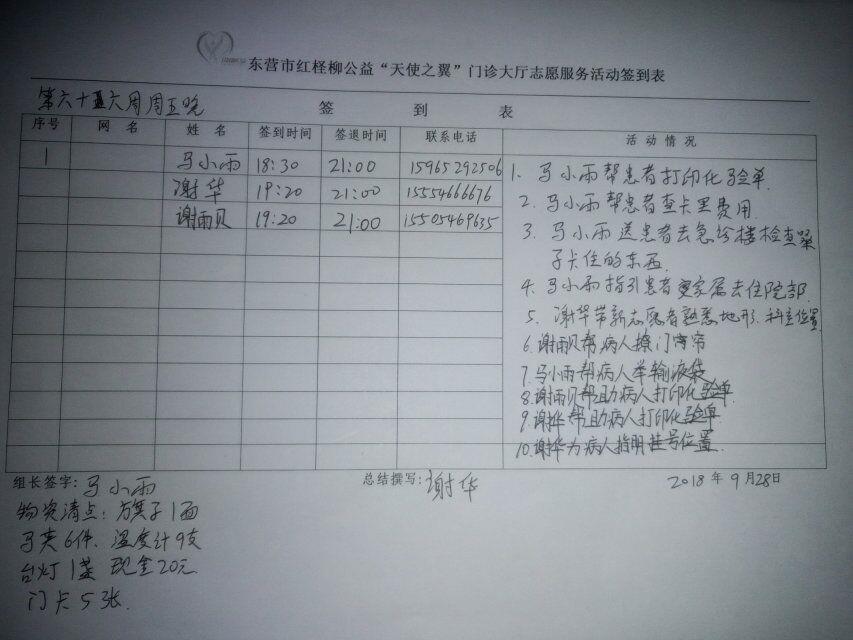 东营市红柽柳公益“天使之翼”门诊大厅志愿服务活动签到表
第六十六周周五晚
签 到 表
序号 网 名 姓 名 签到时间 签退时间 联系电话 活 动 情 况
1 马小雨 18:30 21:00 15965292506
谢华 19:20 21:00 15554666676
谢雨贝 19:20 21:00 15505469635
1. 马小雨帮患者打印化验单.
2. 马小雨帮患者查卡里费用.
3. 马小雨送患者去急诊楼检查嗓
子卡住的东西.
4. 马小雨指引患者家属去住院部.
5. 谢华带新志愿者熟悉地形.科室位置
6. 谢雨贝帮病人撩门帘
7. 马小雨帮病人举输液袋
8. 谢雨贝帮助病人打印化验单.
9. 谢华帮助病人打印化验单
10. 谢华为病人指明挂号位置.
组长签字: 马小雨 总结撰写: 谢华 2018 年 9 月 28 日
物资清点: 旗子1面
马夹6件、温度计9支
台灯1盏 现金20元
门卡5张.